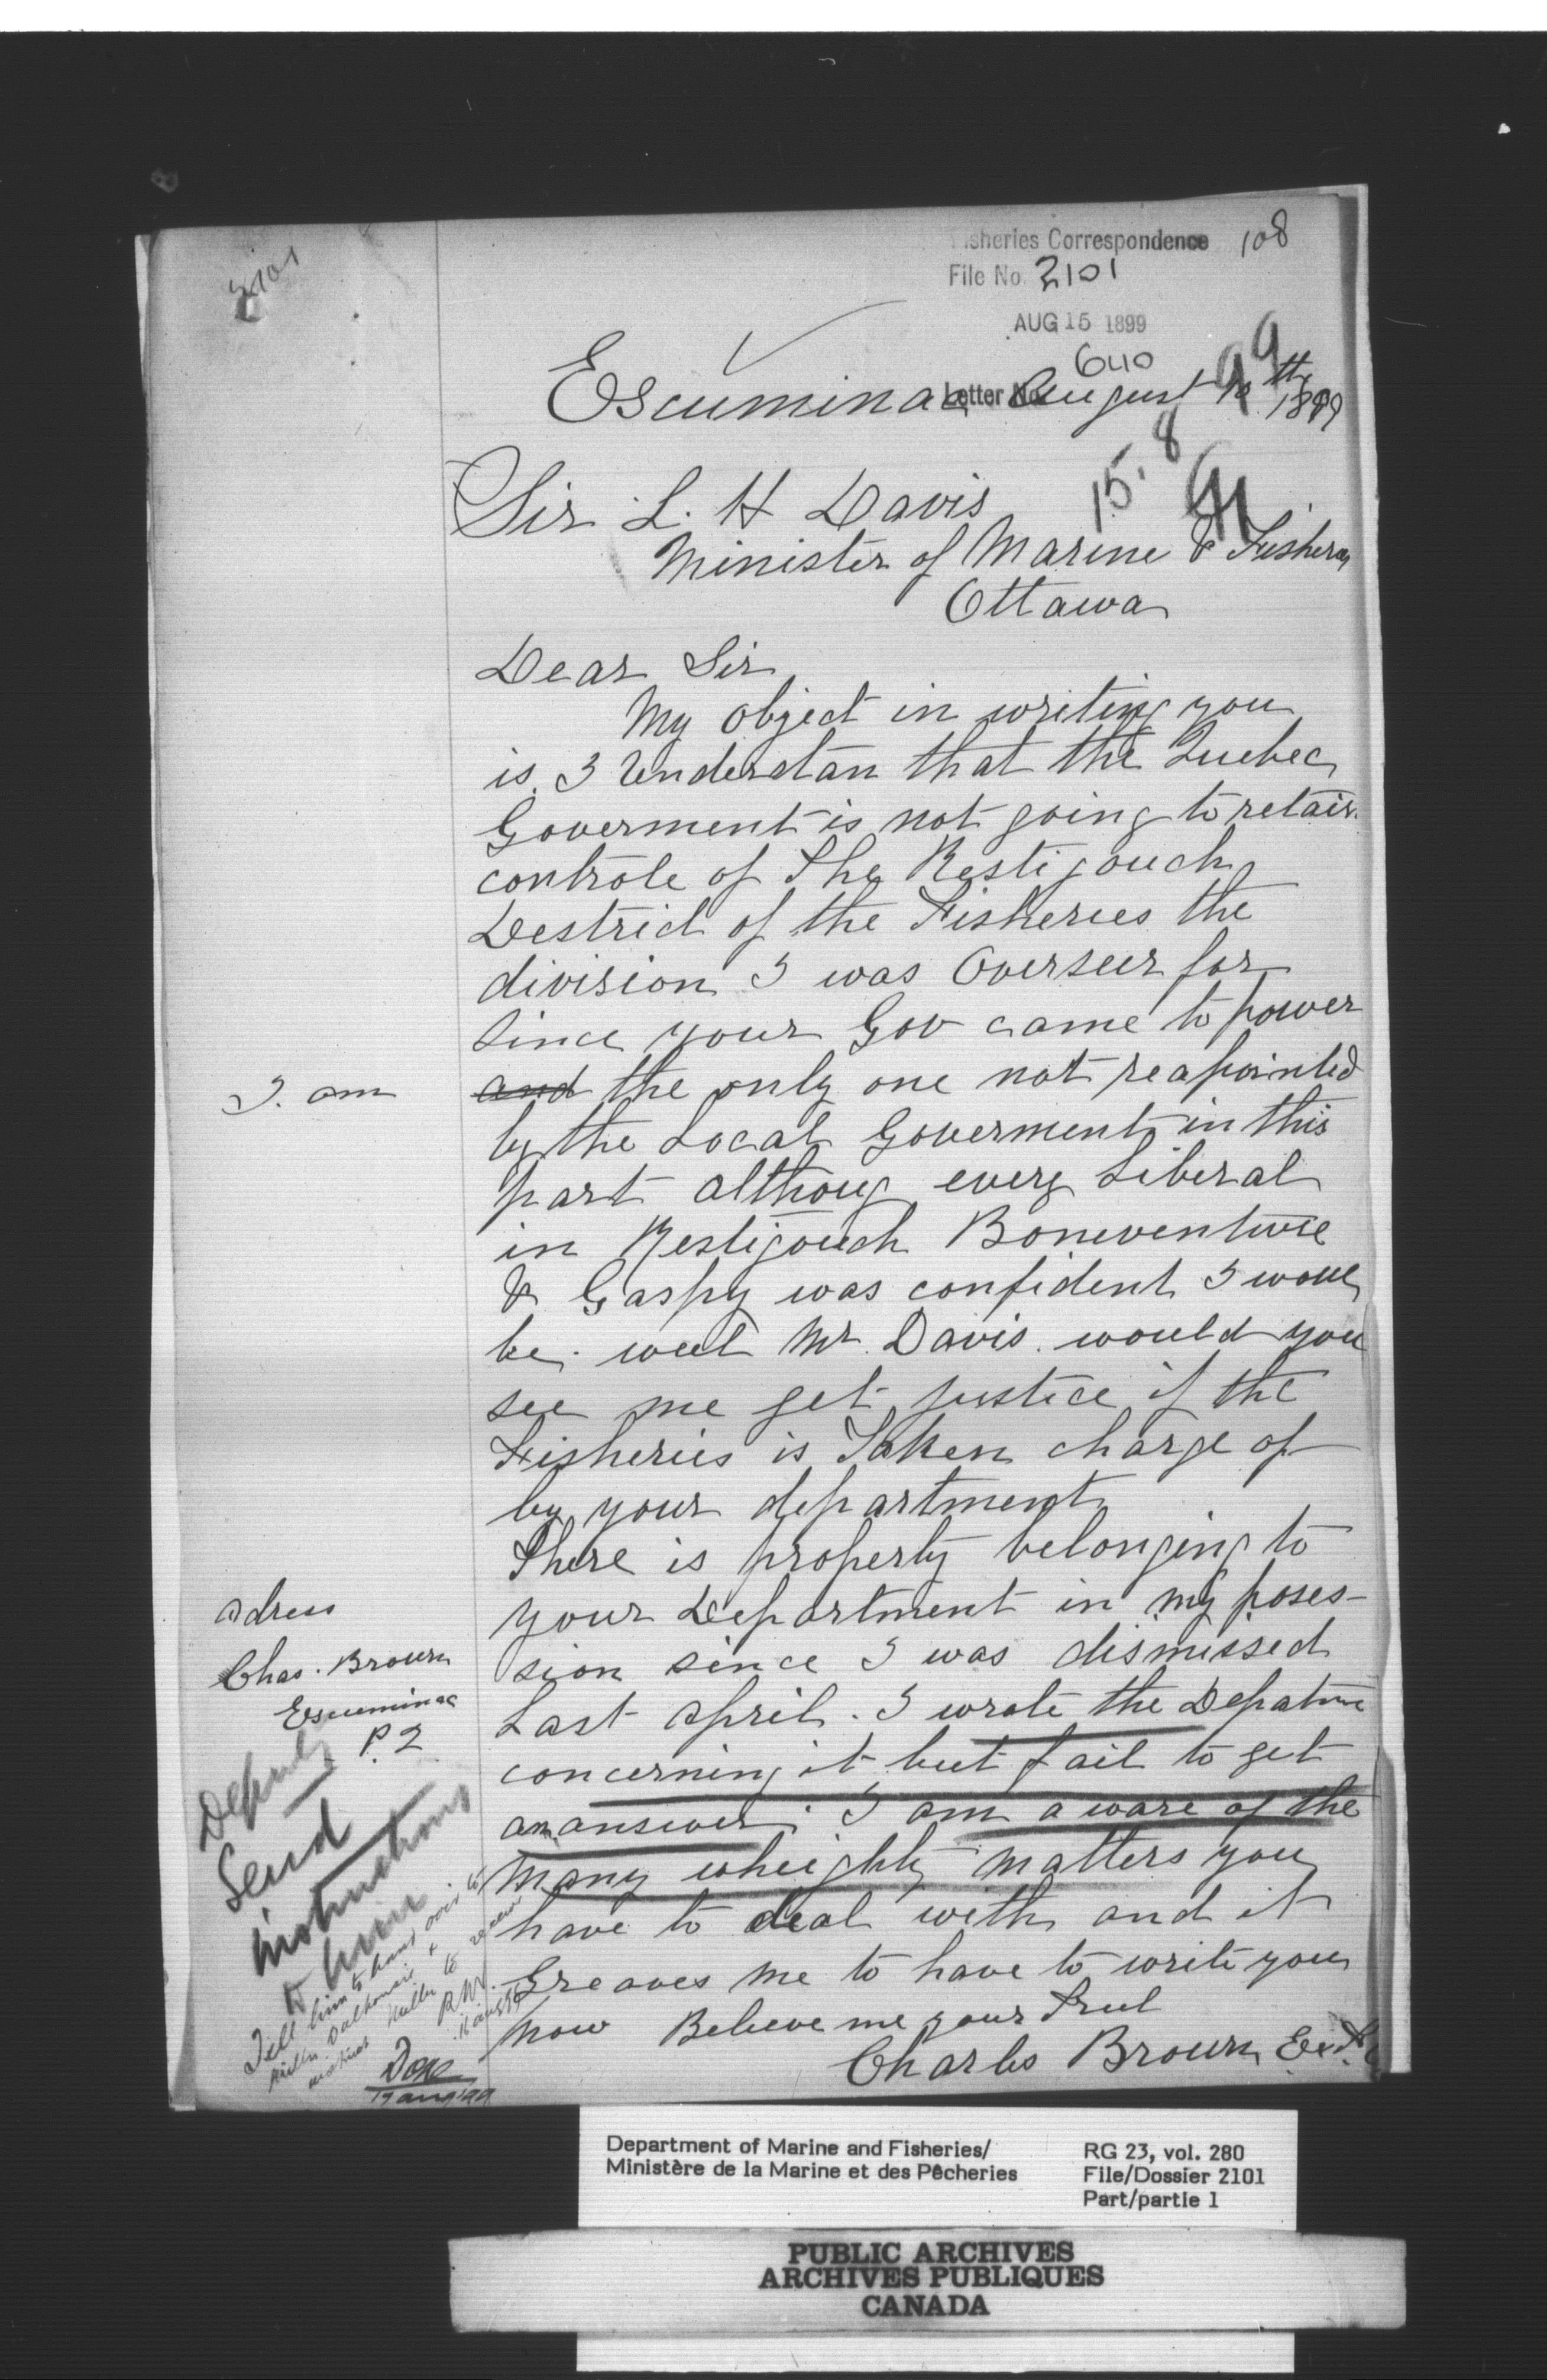 2101
Fisheries Correspondence 108
File No. 2101
AUG 15 1899
640
Letter No.
99
Escuminac August 10th 1899
15.8
Sir L. H Davis
Minister of Marine & Fishery
Ottawa
Dear Sir
My object in writing you
is I Understan that the Quebec
Goverment is not going to retain
controle of The Restigouch
Destrict of the Fisheries the
division I was Overseer for
since your Gov came to power
I. am
and the only one not reapointed
by the Local Goverment in this
part althoug every Liberal
in Restigouch Boneventure
& Gaspy was confident I woul
be. well Mr Davis. would you
see me get justice if the
Fisheries is Taken charge of
by your department
There is property belonging to
your Department in my poses-
sion since I was dismissed
Last April. I wrote the Depatme
concerning it but fail to get
an answer. I am aware of the
many wheighty matters you
have to deal with and it
Greaves me to have to write you
now Believe me your Trul
Charles Brown
adress
Chas. Brown
Escuminac
P. Q
Deputy
Send
instructions
to him
Tell him to hand over to
Miller Dalhousie &
instruct Miller to
Done
17 aug/99
Department of Marine and Fisheries/
Ministère de la Marine et des Pêcheries
RG 23, vol. 280
File/Dossier 2101
Part/partie 1
PUBLIC ARCHIVES
ARCHIVES PUBLIQUES
CANADA